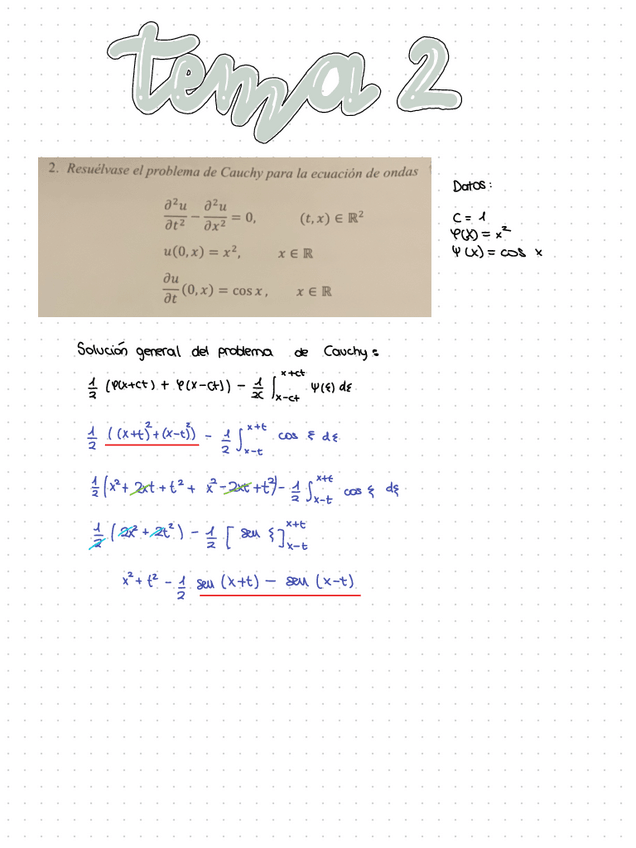 tema 2
2. Resuélvase el problema de Cauchy para la ecuación de ondas
∂²u/∂t² − ∂²u/∂x² = 0, (t, x) ∈ ℝ²
u(0, x) = x², x ∈ ℝ
∂u/∂t (0, x) = cos x, x ∈ ℝ
Datos:
C = 1
φ(x) = x²
ψ(x) = cos x
Solución general del problema de Cauchy:
1/2 (φ(x+ct) + φ(x-ct)) - 1/2c ∫_{x-ct}^{x+ct} ψ(ξ) dξ
1/2 ((x+t)² + (x-t)²) - 1/2 ∫_{x-t}^{x+t} cos ξ dξ
1/2 (x² + 2xt + t² + x² - 2xt + t²) - 1/2 ∫_{x-t}^{x+t} cos ξ dξ
1/2 (2x² + 2t²) - 1/2 [ sen ξ ]_{x-t}^{x+t}
x² + t² - 1/2 sen (x+t) - sen (x-t)